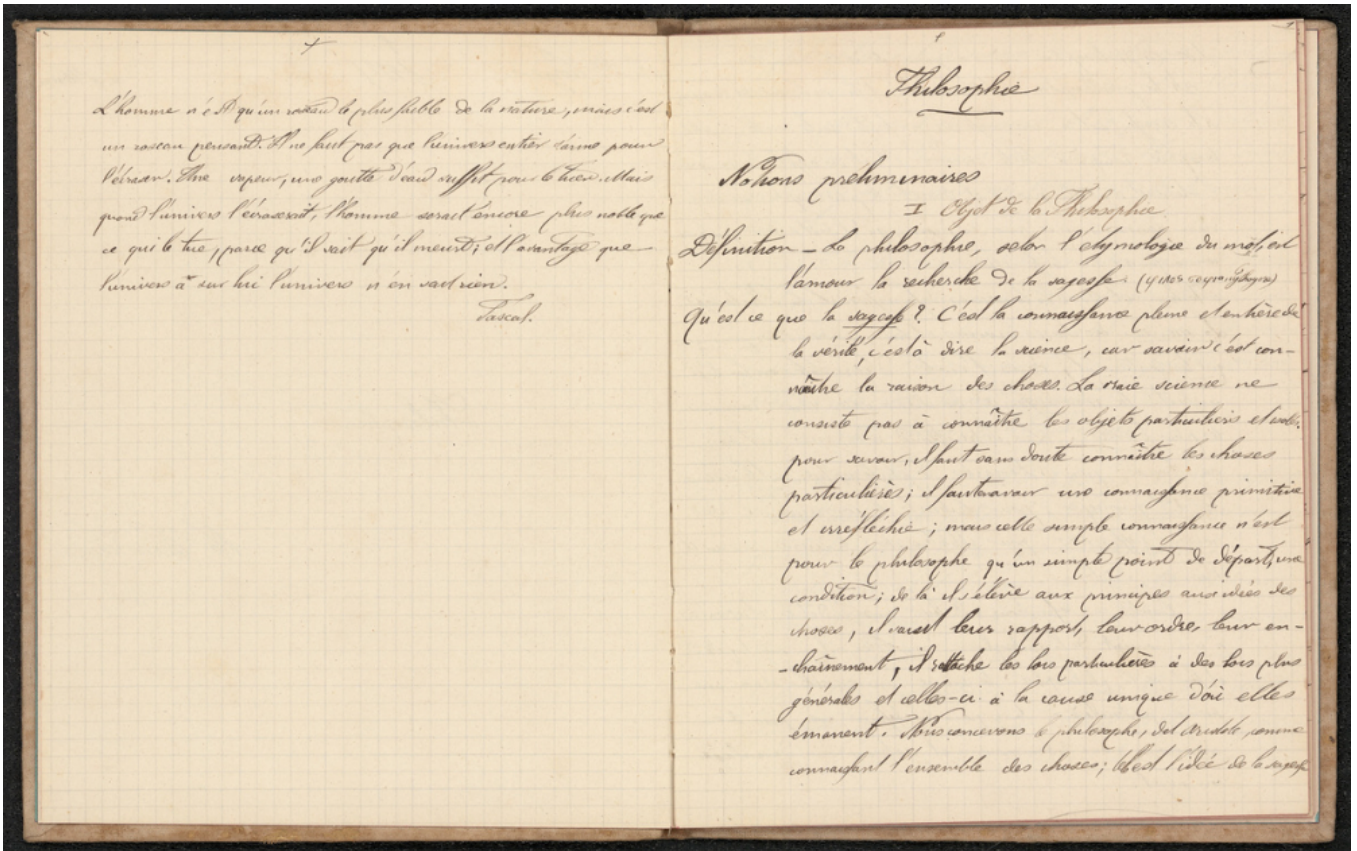 L'homme n'est qu'un roseau le plus faible de la nature, mais c'est
un roseau pensant. Il ne faut pas que l'univers entier s'arme pour
l'écraser. Une vapeur, une goutte d'eau suffit pour le tuer. Mais
quand l'univers l'écraserait, l'homme serait encore plus noble que
ce qui le tue, parce qu'il sait qu'il meurt; et l'avantage que
l'univers a sur lui l'univers n'en sait rien.
Pascal.
Philosophie
Notions préliminaires
I Objet de la Philosophie
Définition – La philosophie, selon l'étymologie du mot, est
l'amour la recherche de la sagesse
Qu'est ce que la sagesse? C'est la connaissance pleine et entière de
la vérité, c'est à dire la science, car savoir c'est con-
naître la raison des choses. La vraie science ne
consiste pas à connaître les objets particuliers et isolés.
pour savoir, il faut sans doute connaître les choses
particulières; il faut avoir une connaissance primitive
et irréfléchie; mais cette simple connaissance n'est
pour le philosophe qu'un simple point de départ, une
condition; de là il s'élève aux principes aux idées des
choses, il saisit leur rapport, leur ordre, leur en-
-chaînement, il rattache les lois particulières à des lois plus
générales et celles-ci à la cause unique d'où elles
émanent. Nous concevons le philosophe, dit Aristote, comme
connaissant l'ensemble des choses; telle est l'idée de la sagesse